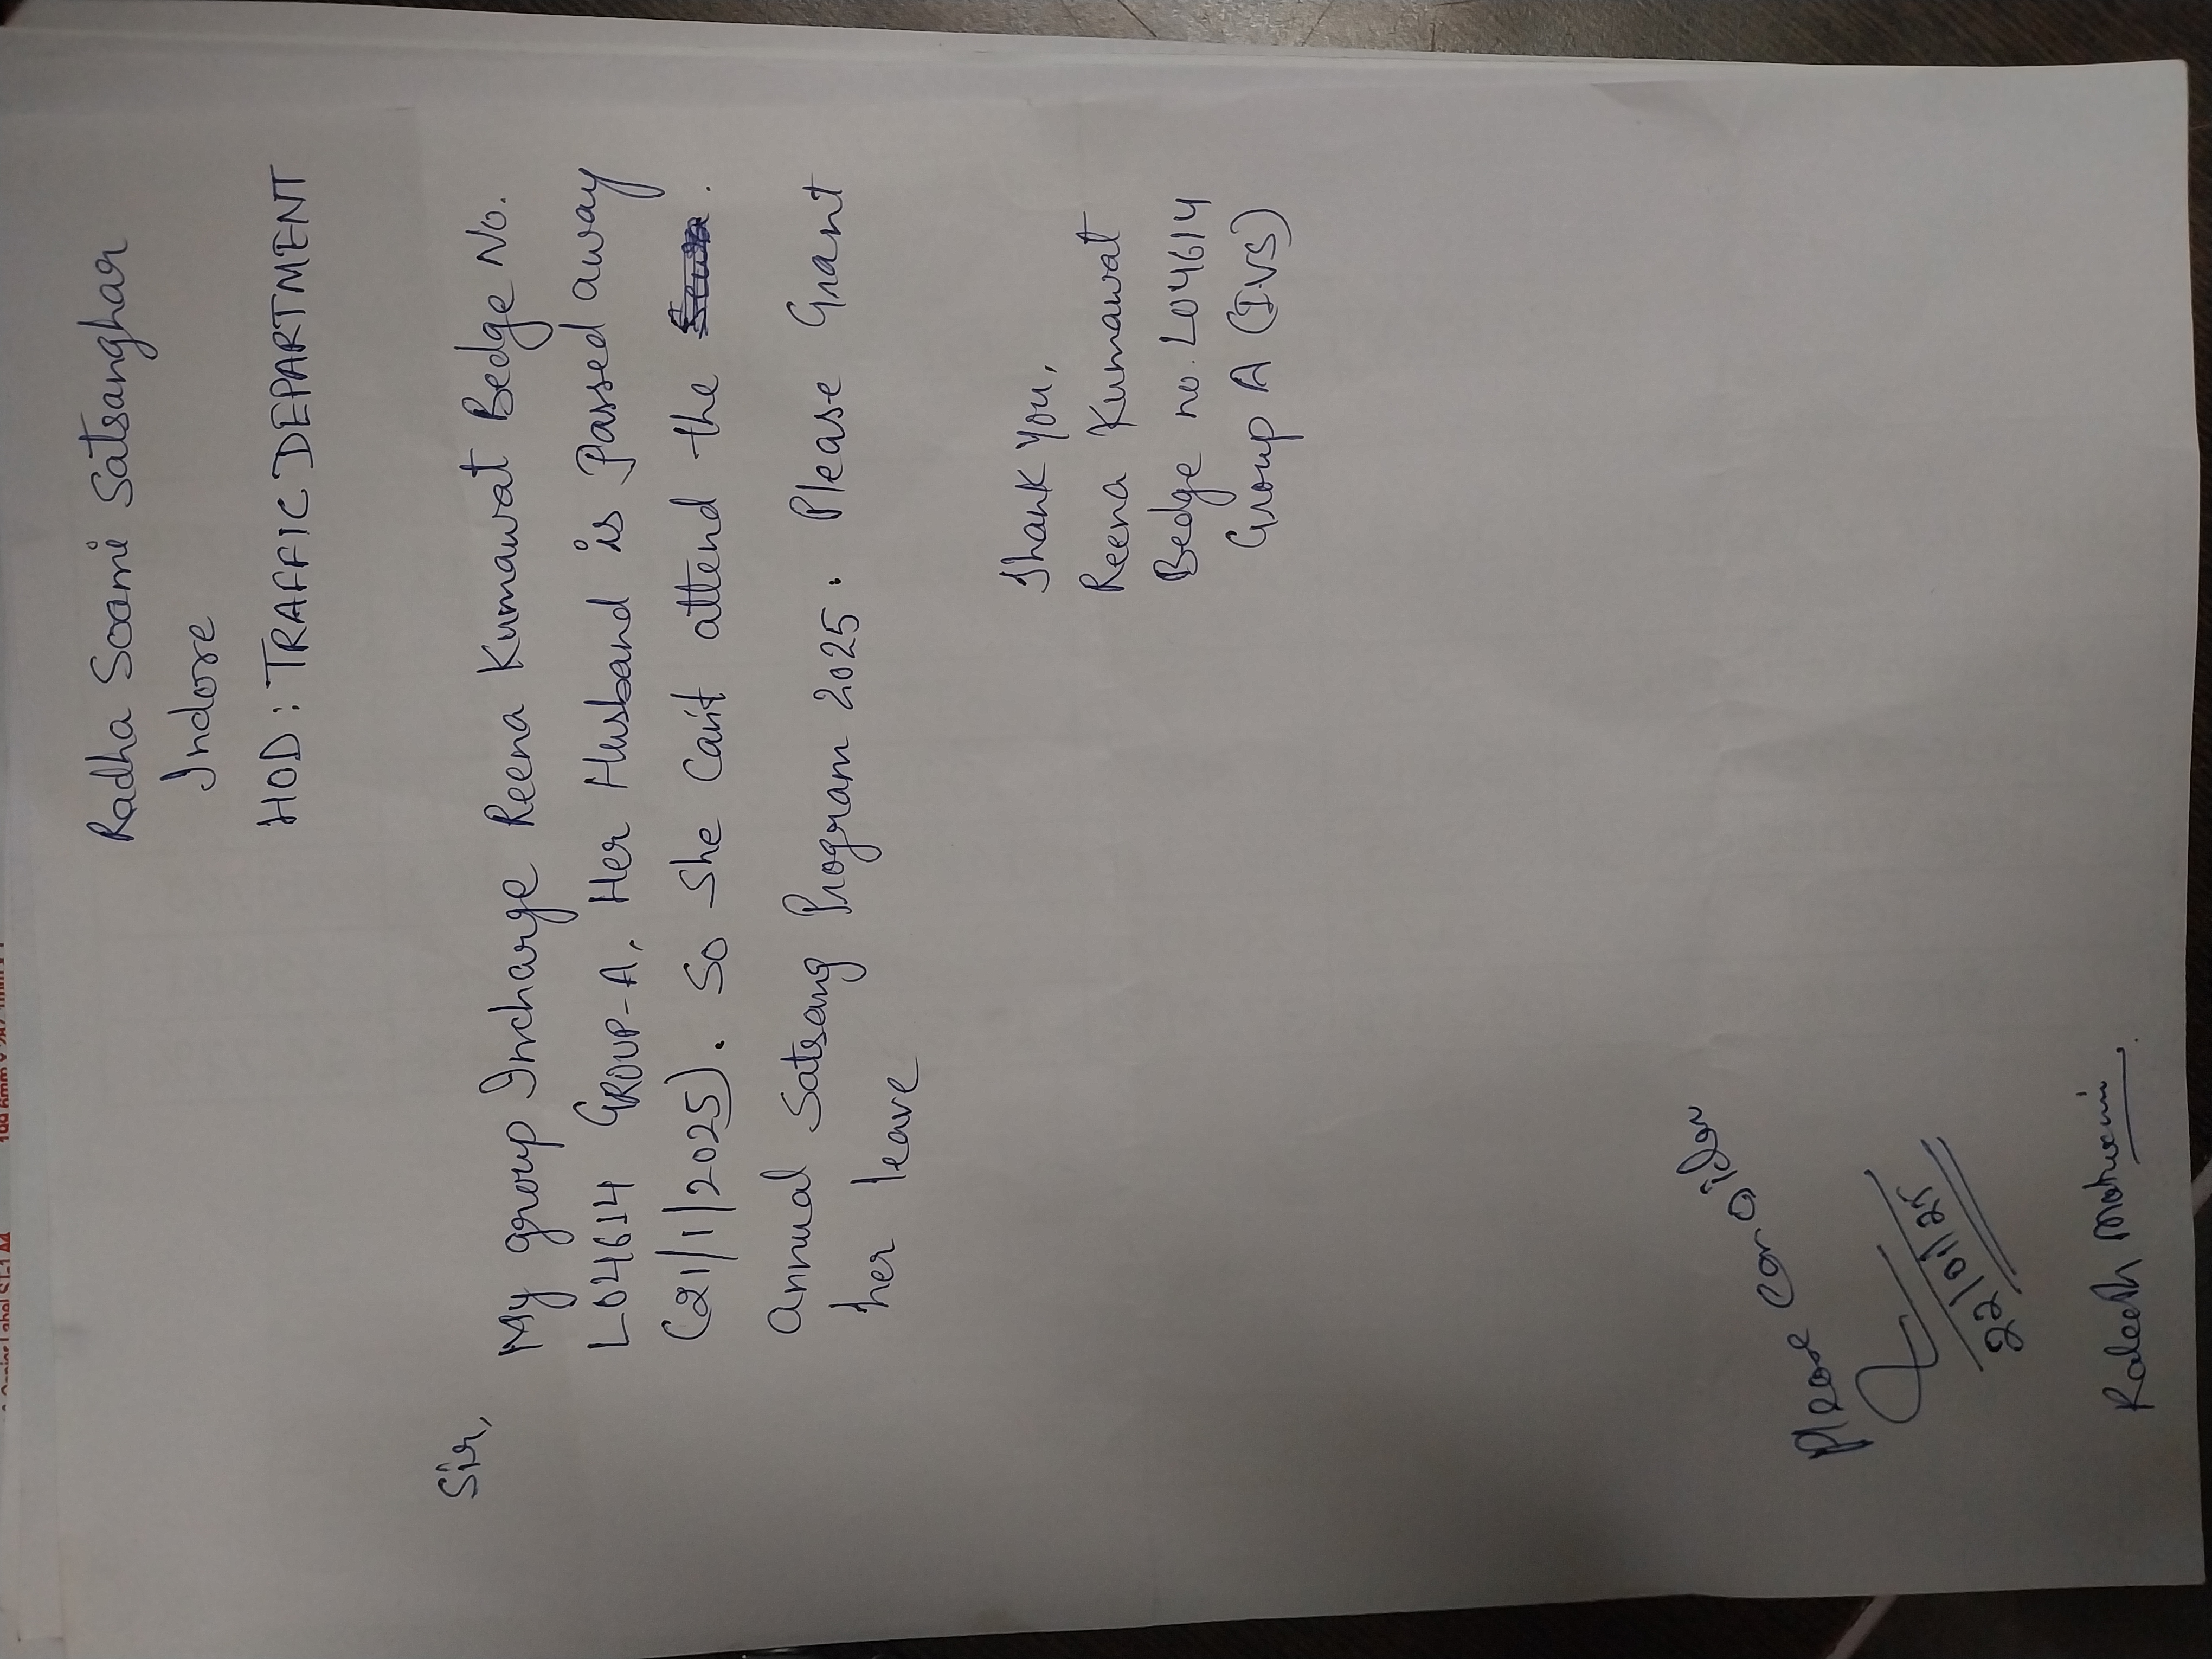 Radha Soami Satsanghar
Indore
HOD : TRAFFIC DEPARTMENT
Sir,
My group Incharge Reena Kumawat Bedge No.
L04614 GROUP-A, Her Husband is Passed away
(21/1/2025). So She Can't attend the
annual Satsang Program 2025. Please Grant
her leave
Thank You,
Reena Kumawat
Bedge no. L04614
Group A (IVS)
Please Consider
22/01/25